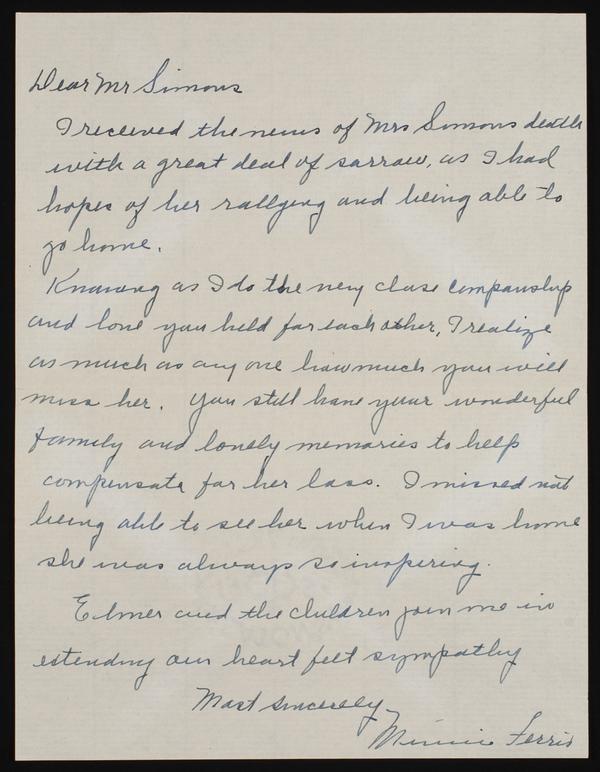 Dear Mr Simons
I received the news of Mrs Simons death
with a great deal of sorrow, as I had
hopes of her rallying and being able to
go home.
Knowing as I do the very close companship
and love you held for each other, I realize
as much as any one how much you will
miss her. You still have your wonderful
family and lovely memories to help
compensate for her loss. I missed not
being able to see her when I was home
she was always so inspiring.
Elmer and the children join me in
extending our heart felt sympathy
Most sincerely
Minnie Ferris